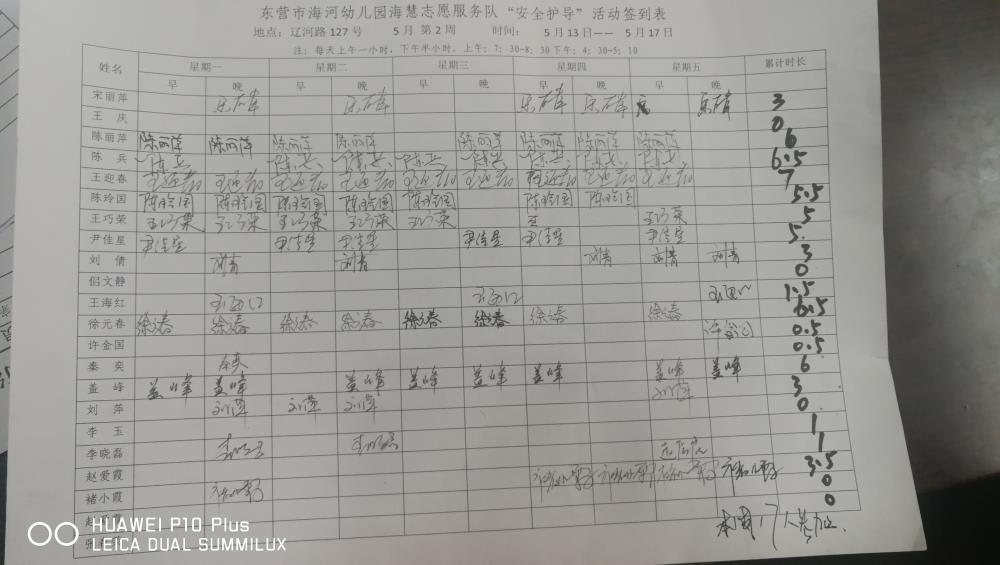 东营市海河幼儿园海慧志愿服务队“安全护导”活动签到表
地点：辽河路 127 号 5 月 第 2 周 时间： 5 月 13 日—— 5 月 17 日
注：每天上午一小时，下午半小时，上午：7：30-8：30 下午：4：30-5：10
姓名 星期一 星期二 星期三 星期四 星期五 累计时长
早 晚 早 晚 早 晚 早 晚 早 晚
宋丽萍 3
王 庆 0
陈丽萍 陈丽萍 陈丽萍 陈丽萍 陈丽萍 陈丽萍 陈丽萍 陈丽萍 陈丽萍 6
陈 兵 陈兵 陈兵 陈兵 陈兵 陈兵 陈兵 陈兵 陈兵 6.5
王迎春 王迎春 王迎春 王迎春 王迎春 王迎春 王迎春 王迎春 王迎春 王迎春 7
陈玲国 陈玲国 陈玲国 陈玲国 陈玲国 陈玲国 陈玲国 陈玲国 5.5
王巧荣 王巧荣 王巧荣 王巧荣 王巧荣 王巧荣 王 王巧荣 5
尹佳星 尹佳星 尹佳星 尹佳星 尹佳星 尹佳星 尹佳星 5
刘 倩 刘倩 刘倩 刘倩 刘倩 刘倩 3
侣文静 0
王海红 王海红 王海红 1.5
徐元春 徐元春 徐元春 徐元春 徐元春 徐元春 徐元春 徐元春 徐元春 6.5
许金国 许金国 0.5
秦 奕 秦奕 0.5
盖 峰 盖峰 盖峰 盖峰 盖峰 盖峰 盖峰 盖峰 盖峰 6
刘 萍 刘萍 刘萍 刘萍 刘萍 3
李 玉 0
李晓磊 李晓磊 李晓磊 1
赵爱霞 1
褚小霞 3.5
0
0
本周 17人
HUAWEI P10 Plus
LEICA DUAL SUMMILUX